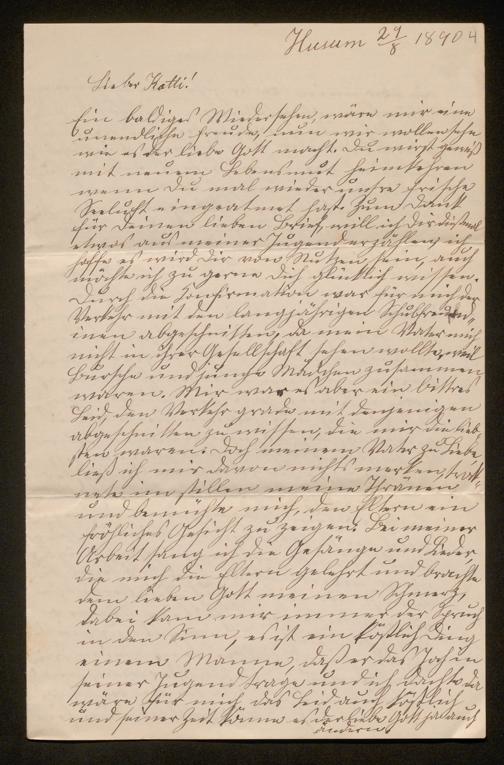 Husum 29/8 1890 4
Lieber Katti!
Ein baldiges Wiedersehen, wäre mir eine
unendliche Freude, nun wir wollen sehn
wie es der liebe Gott macht. Du wirst gewiß
mit neuem Lebensmut heimkehren
wenn Du mal wieder unsre frische
Seeluft eingeatmet hast. Zum Dank
für Deinen lieben Brief, will ich Dir diesmal
etwas aus meiner Jugend erzählen, ich
hoffe es wird Dir von Nutzen sein, auch
möchte ich zu gerne Dich glücklich wissen.
Durch die Konfirmation war für mich der
Verkehr mit den langjährigen Schulfreund-
innen abgeschnitten, da mein Vater mich
nicht in ihrer Gesellschaft sehen wollte, weil
Bursche und junge Mädchen zusammen
waren. Mir war es aber ein bittres
Leid, den Verkehr grade mit denjenigen
abgeschnitten zu wissen, die mir die lieb-
sten waren. Doch meinem Vater zu Liebe
ließ ich mir davon nichts merken, trock-
nete im stillen meine Thränen
und bemühte mich, den Eltern ein
fröhliches Gesicht zu zeigen. Bei meiner
Arbeit sang ich die Gesänge und Lieder
die mich die Eltern gelehrt und brachte
dem lieben Gott meinen Schmerz,
dabei kam mir immer der Spruch
in den Sinn, es ist ein köstlich Ding
einem Manne, daß er das Joch in
seiner Jugend trage und ich dachte da
wäre für mich das Leid auch köstlich
und seiner Zeit könne es der liebe Gott ja auch
ändern